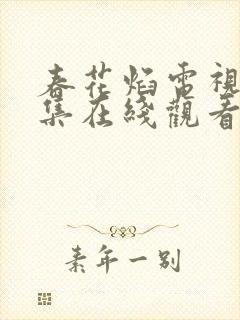 春花焰電視
集在綫觀看
素年一別